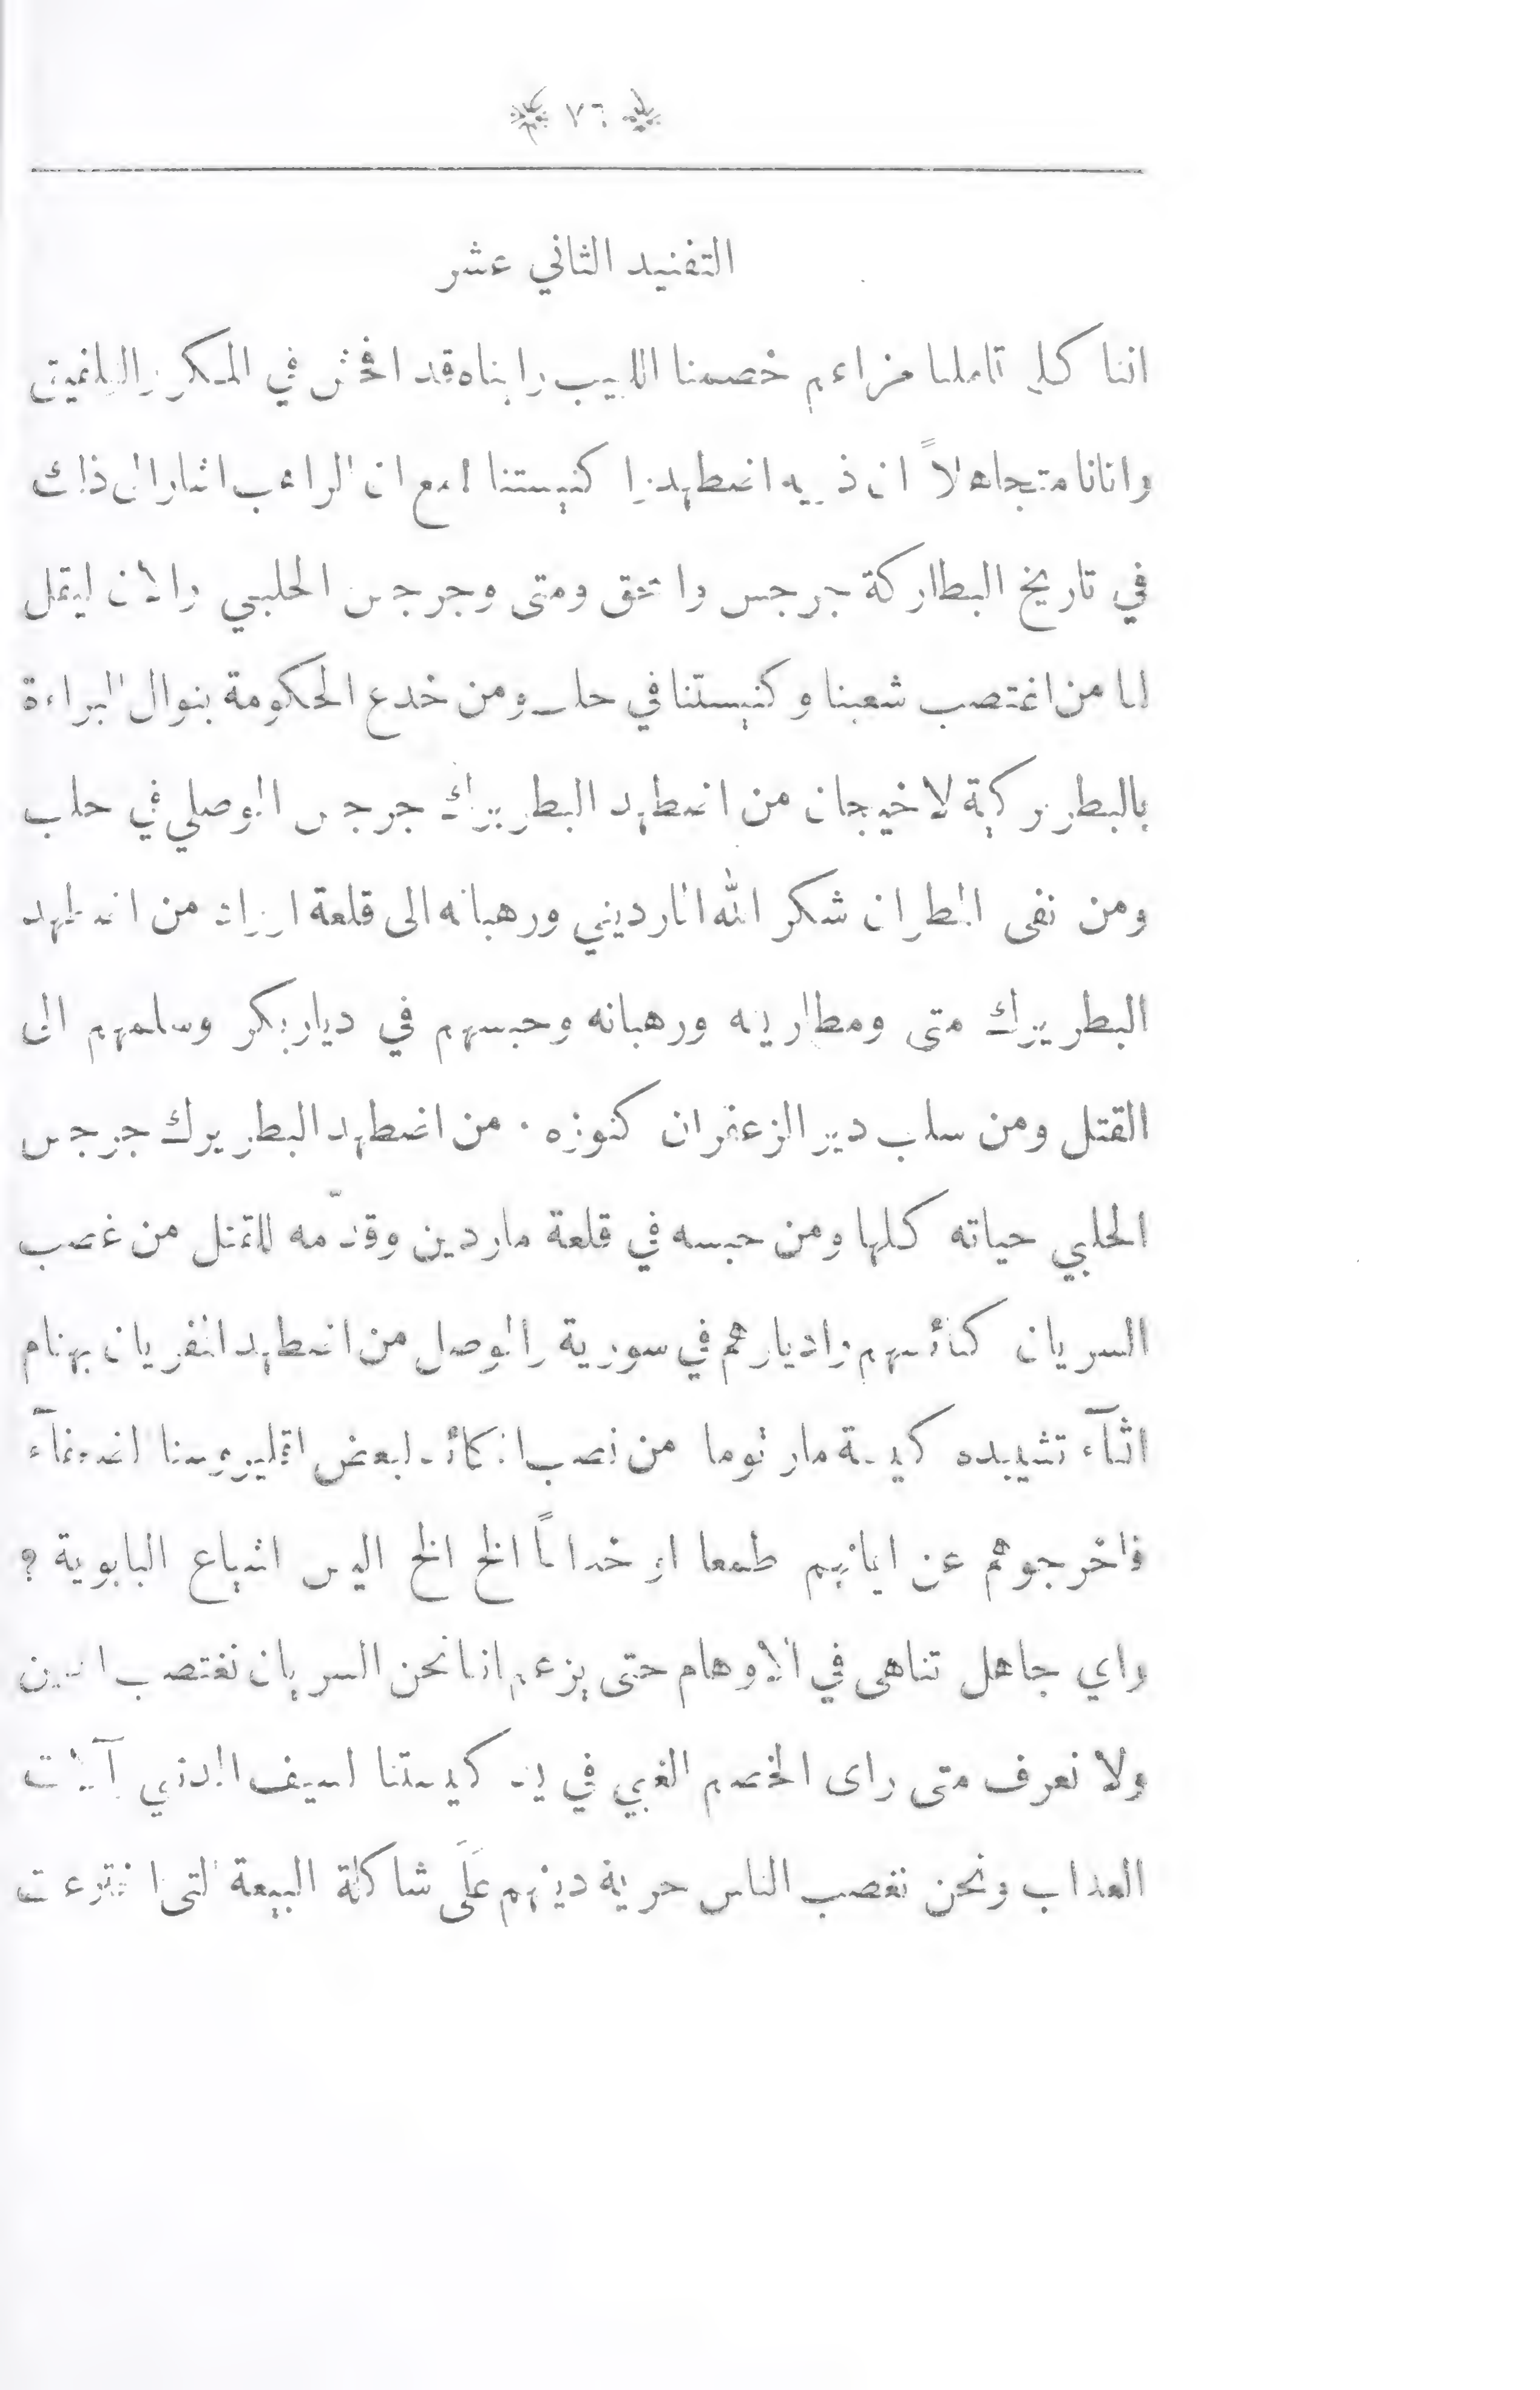 ٧٦
التفنيد الثاني عشر
اننا كلما تاملنا مزاعم خصمنا اللبيب رايناه قد افحش في المكر والتلفيق
واتانا متجاهلاً ان ذويه اضطهدوا كنيستنا مع ان الراهب اشار الى ذلك
في تاريخ البطاركة جرجس واسحق ومتى وجرجس الحلبي والان ليقل
لنا من اغتصب شعبنا وكنيستنا في حلب ومن خدع الحكومة بنوال البراءة
بالبطريركية لاخيجان من اضطهد البطريرك جرجس الموصلي في حلب
ومن نفى المطران شكر الله المارديني ورهبانه الى قلعة ارواد من اضطهد
البطريرك متى ومطارينه ورهبانه وحبسهم في دياربكر وسلمهم الى
القتل ومن سلب دير الزعفران كنوزه ٠ من اضطهد البطريرك جرجس
الحلبي حياته كلها ومن حبسه في قلعة ماردين وقدّمه للقتل من غصب
السريان كنائسهم واديارهم في سورية والموصل من اضطهد المفريان بهنام
اثنآء تشييده كنيسة مار توما من نصب المكائد لبعض اكليروسنا الضعفآء
فاخرجوهم عن ايمانهم طمعا او خداعاً الخ الخ اليس اتباع البابوية ?
واي جاهل تناهى في الاوهام حتى يزعم اننا نحن السريان نغتصب الدين
ولا نعرف متى راى الخصم الغبي في يد كنيستنا السيف المدني آلات
العذاب ونحن نغصب الناس حرية دينهم عَلَى شاكلة البيعة التي اخترعت